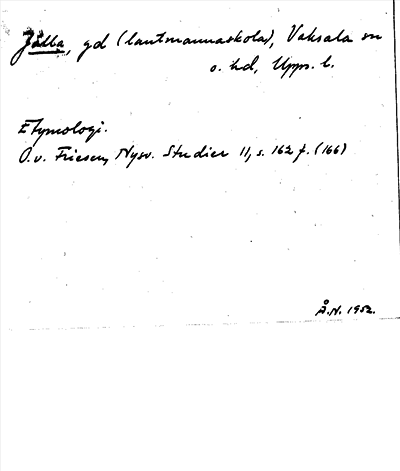 Jälla, gd (lantmannaskola), Vaksala sn
o. hd, Upps. l.
Etymologi.
O.v. Friesen, Nysv. Studier 11, s. 162 f. (166)
Å.N. 1952.